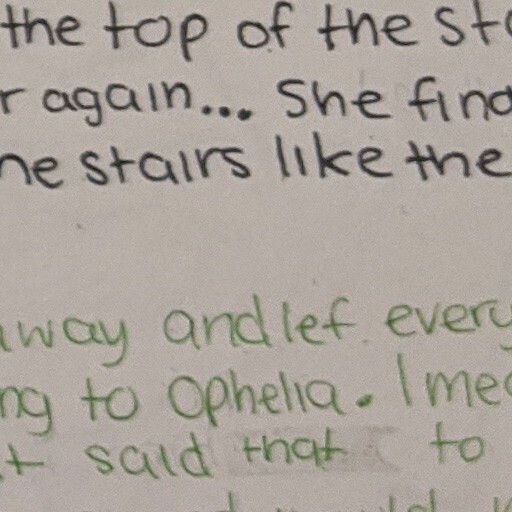 the top of the st
r again... She find
he stairs like the
way and lef every
ng to Ophelia. I me
t said that to